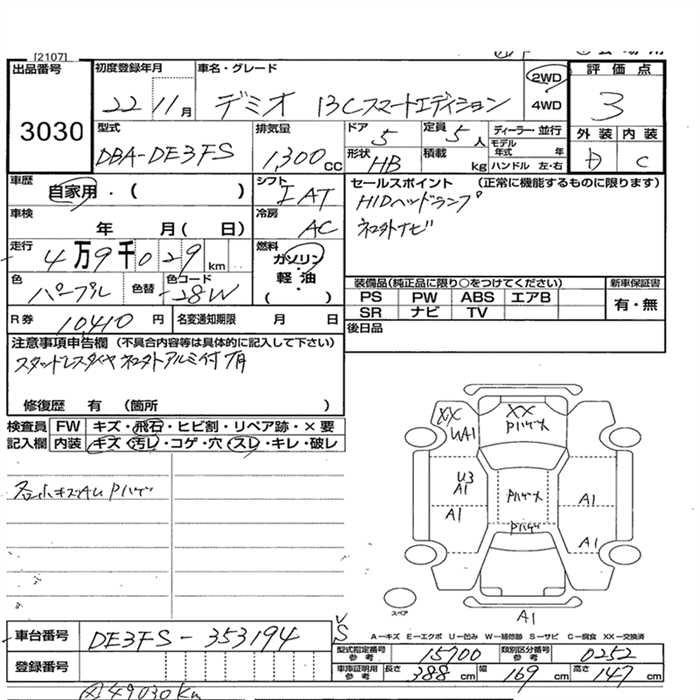 [2107]
出品番号
3030
初度登録年月
22 11月
車名・グレード
デミオ 13Cスマートエディション
2WD
4WD
評価点
3
外装 内装
D C
型式
DBA-DE3FS
排気量
1,300cc
ドア
5
定員
5人
形状
HB
積載
kg
ディーラー・並行
モデル年式 年
ハンドル 左・右
車歴
自家用・( )
シフト
IAT
車検
年 月( 日)
冷房
AC
走行
4万9千029km
燃料
ガソリン
・
軽油
( )
色
パープル
色替
色コード
28W
R券
10,410円
名変通知期限 月 日
セールスポイント (正常に機能するものに限ります)
HIDヘッドランプ
装備品(純正品に限り○をつけてください)
PS PW ABS エアB
SR ナビ TV
新車保証書
有・無
後日品
注意事項申告欄(不具合内容等は具体的に記入して下さい)
修復歴 有 (箇所 )
検査員記入欄
FW キズ・飛石・ヒビ割・リペア跡・×要
内装 キズ・汚レ・コゲ・穴・スレ・キレ・破レ
XX
WA1
XX
Pハゲメ
U3
A1
A1
Pハゲメ
Pハゲ
A1
A1
A1
スペア
A-キズ E-エクボ U-凹み W-補修跡 S-サビ C-腐食 XX-交換済
車台番号
DE3FS-353194
登録番号
S
型式指定番号
参考
15700
類別区分番号
参考
0252
車庫証明用
参考
長さ 388cm 幅 169cm 高さ 147cm
49030Km